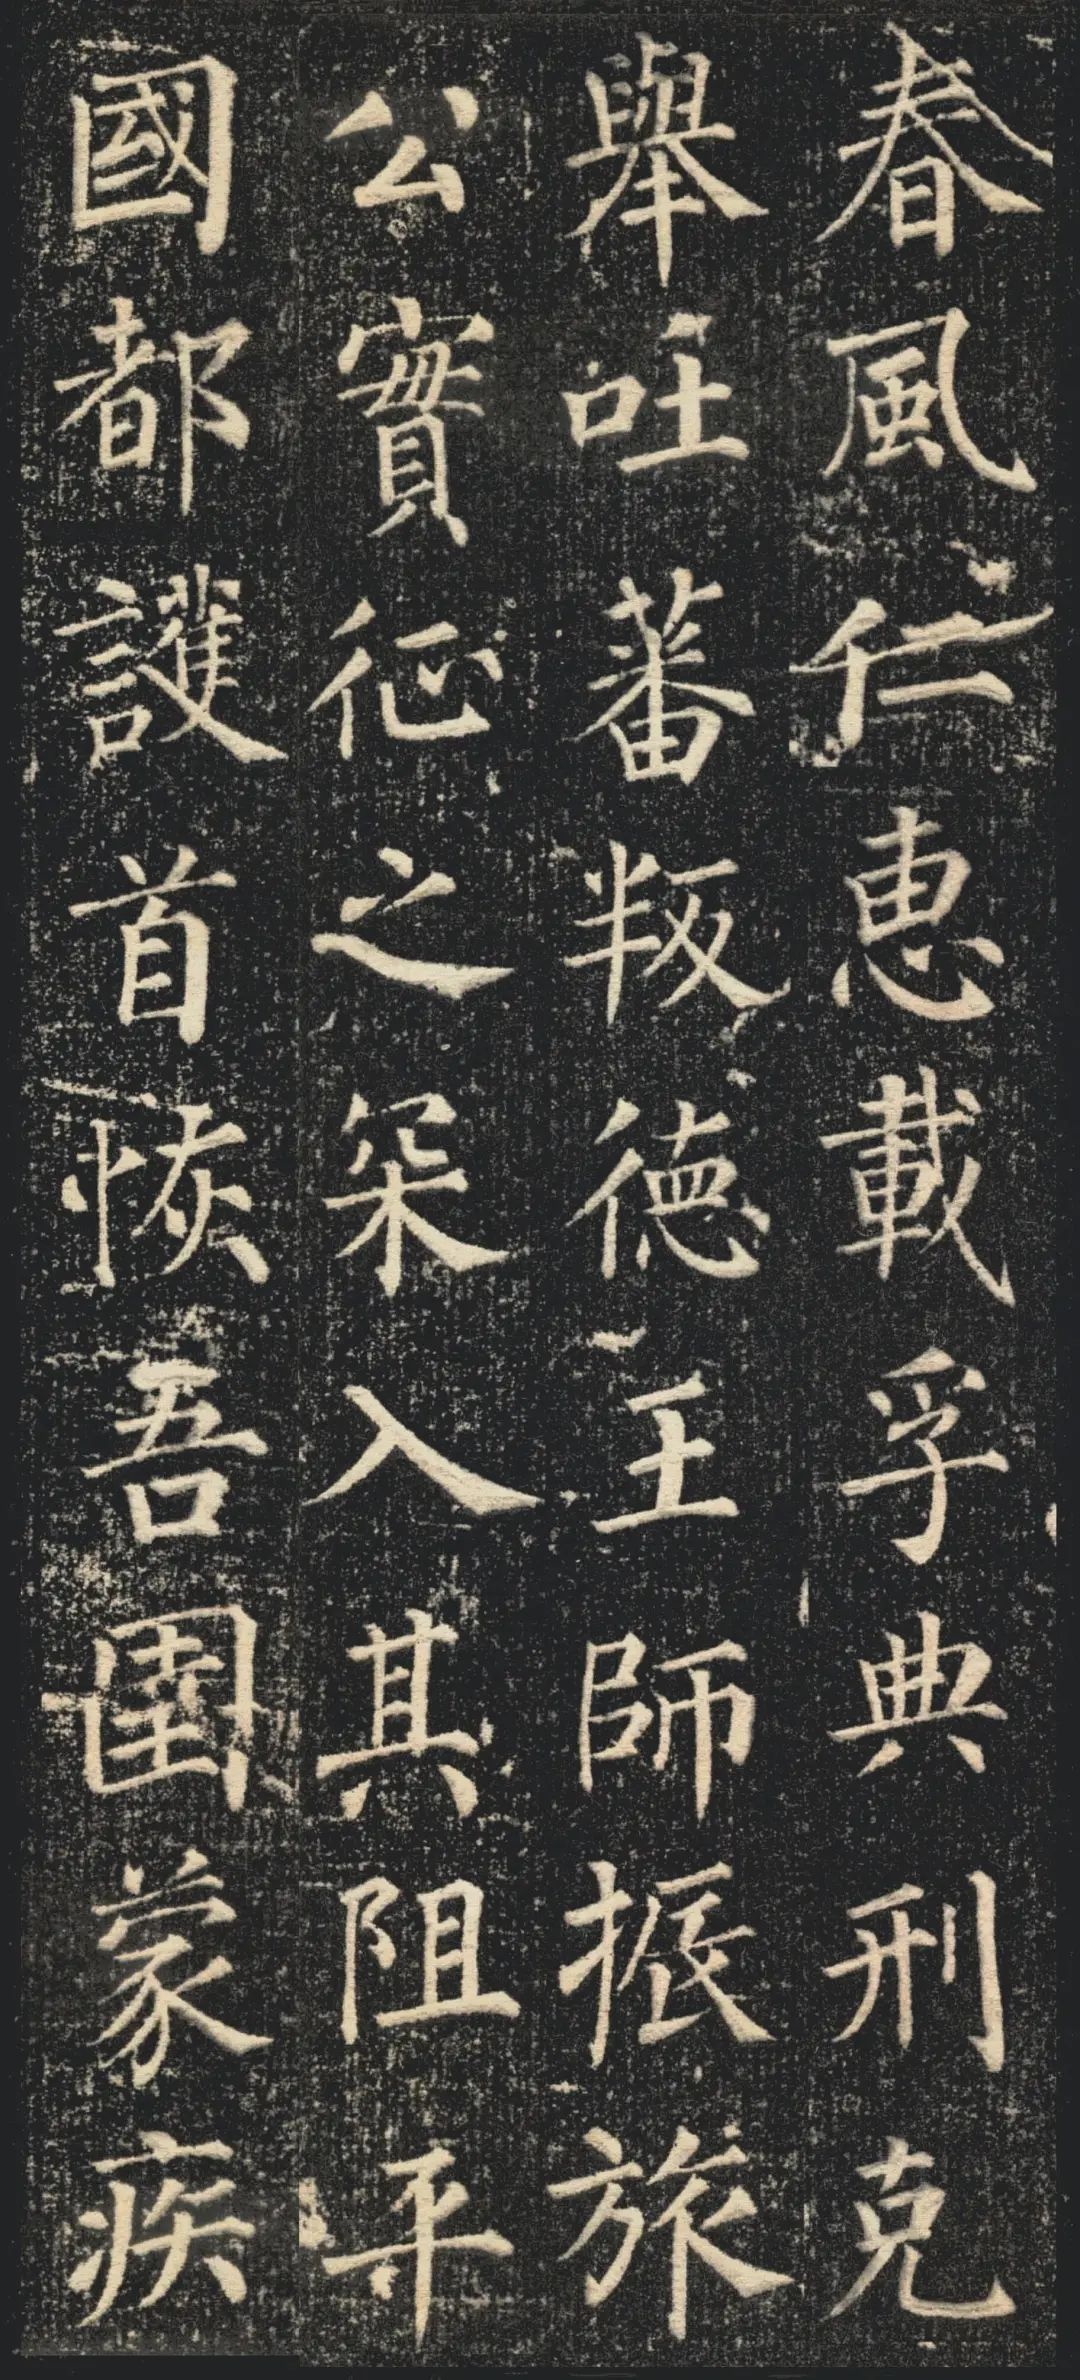 春風仁惠載孚典刑克
舉吐蕃叛德王師振旅
公實征之罙入其阻平
國都護首恢吾圉蒙疾